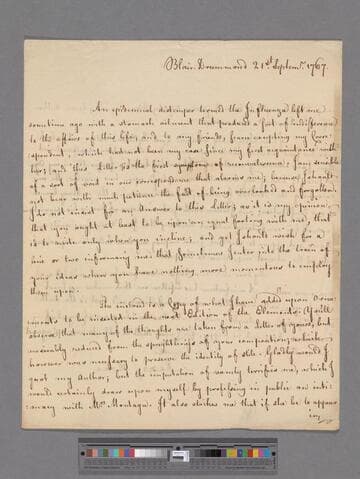 Blair Drummond 21st Septemr. 1767.
An epidemical distemper termd the Influenza left me
sometime ago with a stomach ailment that producd a sort of indifference
to the affairs of this life, and to any friends, from excepting my Corre-
spondent, which had not been my case since my first acquaintance with
her; and this Letter is the first symptom of reconvalescence. I am sensible
of a sort of void in our correspondence that alarms me; because I cannot
not bear with much patience the fact of being overlooked and forgotten.
I do not insist for an Answer to this Letter; as it is my opinion,
that you ought at least to be upon an equal footing with me, that
is to write only when you incline; and yet I cannot wish for a
line or two informing me that I sometimes enter into the train of
your ideas when you have nothing more momentous to employ
them upon.
The inclosd is a Copy of what I have added upon Orna-
ments to be inserted in the next Edition of the Elements. You'll
observe that many of the thoughts are taken from a Letter of yours, but
miserably reduced from the sprightliness of your composition; which
however was necessary to preserve the identity of stile. Gladly would I
quot my Author; but the imputation of vanity terrifies me, which I
would certainly draw upon myself by professing in public an inti-
macy with Mrs. Montagu. It also strikes me that if she be to appear
in